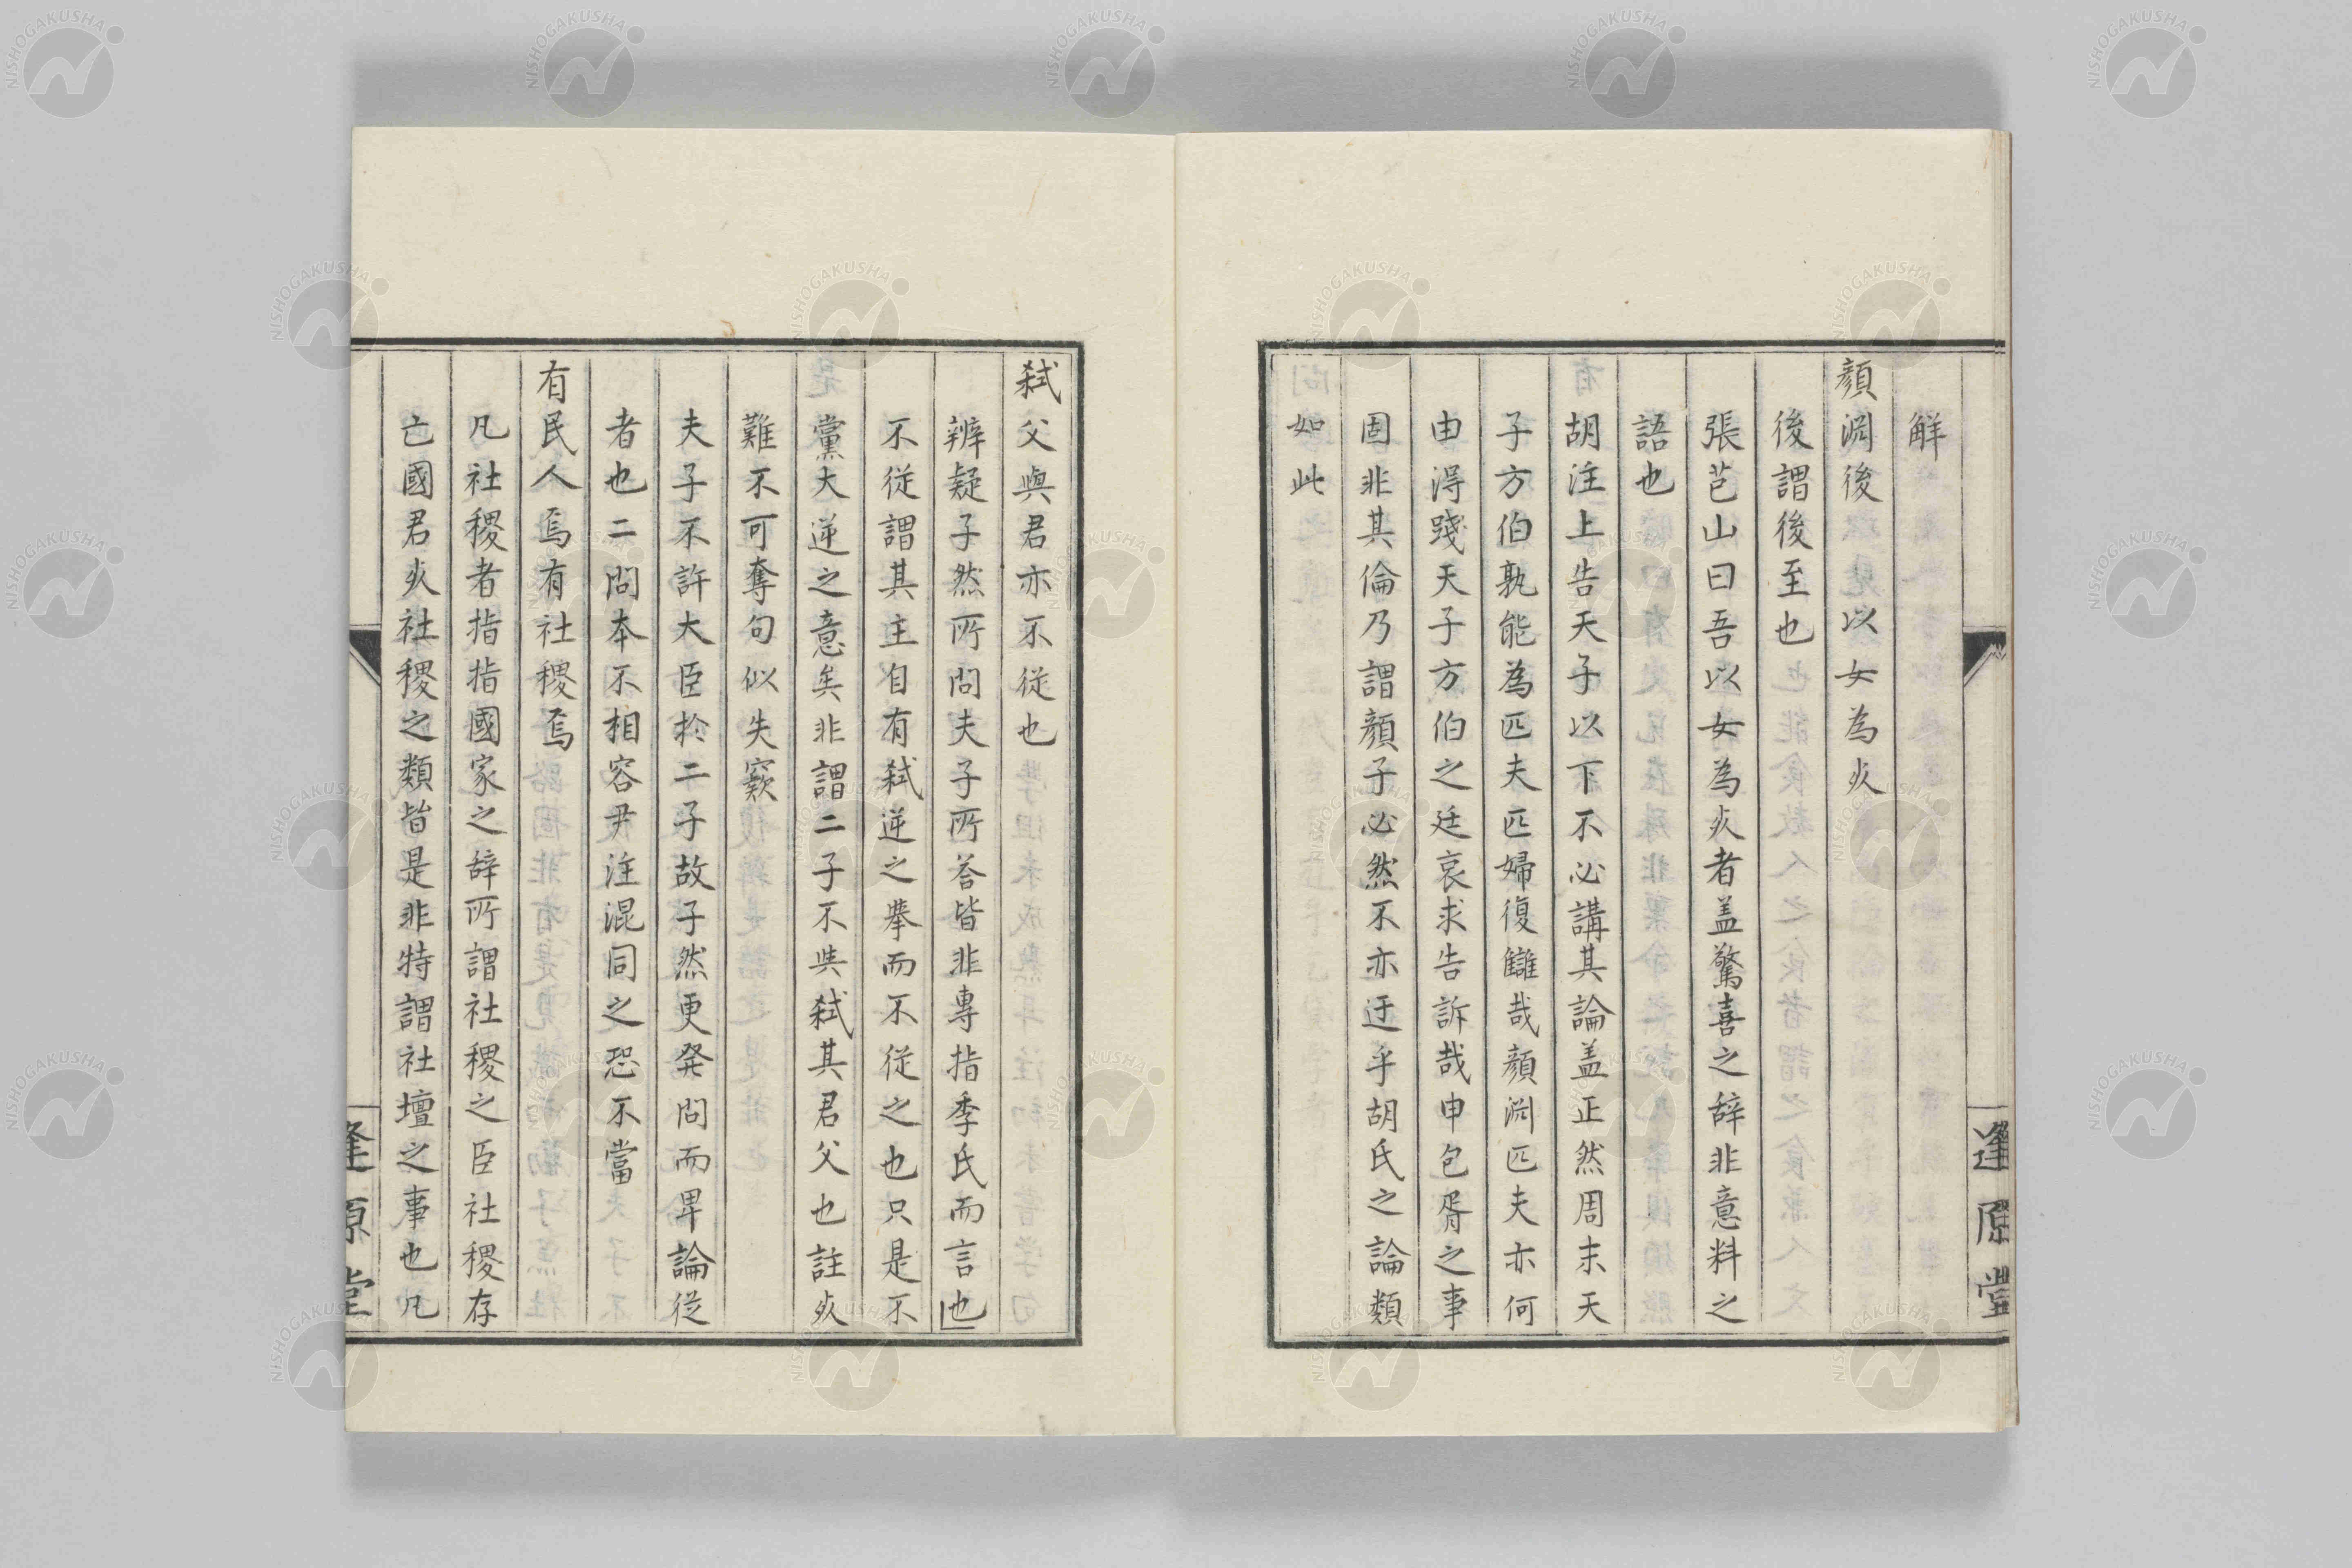 解
顏淵後　以女為㱙
後謂後至也
張芑山曰吾以女為㱙者盖驚喜之辞非意料之
語也
胡注上告天子以下不必講其論盖正然周末天
子方伯孰能為匹夫匹婦復讎哉顏淵匹夫亦何
由得踐天子方伯之廷哀求告訴哉申包胥之事
固非其倫乃謂顏子必然不亦迂乎胡氏之論類
如此
逢原堂
弑父與君亦不從也
辨疑子然所問夫子所荅皆非專指季氏而言也
不從謂其主自有弑逆之擧而不從之也只是不
黨大逆之意矣非謂二子不與弑其君父也註㱙
難不可奪句似失窾
夫子不許大臣於二子故子然更発問而卑論從
者也二問本不相容尹注混同之恐不當
有民人焉有社稷焉
凡社稷者指指國家之辞所謂社稷之臣社稷存
亡國君㱙社稷之類皆是非特謂社壇之事也凡
逢原堂
NISHOGAKUSHA